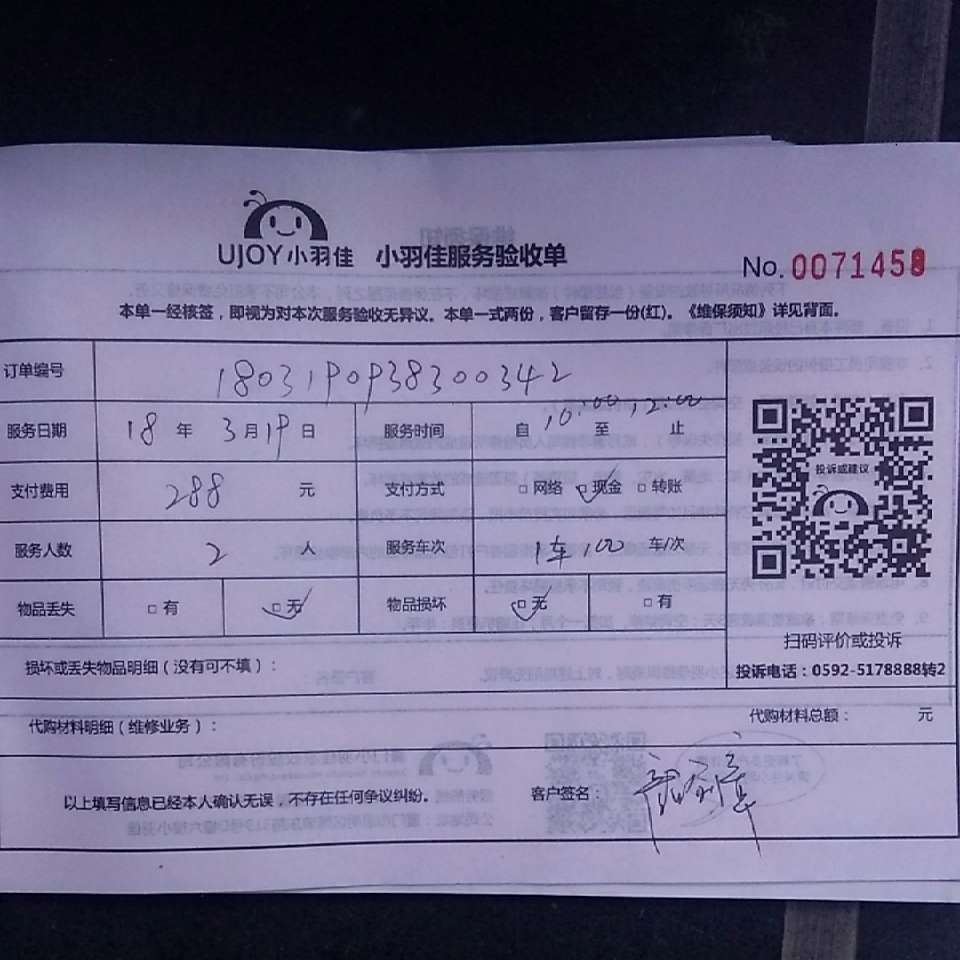 UJOY小羽佳 小羽佳服务验收单
No. 0071458
本单一经核签，即视为对本次服务验收无异议。本单一式两份，客户留存一份(红)。《维保须知》详见背面。
订单编号 1803190938300342
服务日期 18 年 3 月 19 日 服务时间 自 10:00 至 12:00 止
支付费用 288 元 支付方式 □网络 □现金 □转账
投诉或建议
服务人数 2 人 服务车次 1车100 车/次
物品丢失 □有 □无 物品损坏 □无 □有
扫码评价或投诉
损坏或丢失物品明细（没有可不填）：
投诉电话：0592-5178888转2
代购材料明细（维修业务）：
代购材料总额： 元
以上填写信息已经本人确认无误，不存在任何争议纠纷。
客户签名：